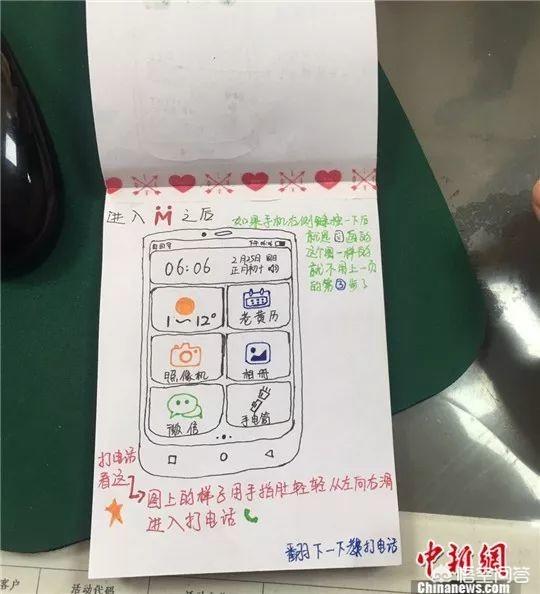 进入 M 之后
如果手机右侧键按一下后
就是图画的
这个图一样的
就不用上一页
的第③步了
中国移动
下午6:06
06:06
2月25日 周日
正月初十
1～12°
老黄历
照像机
相册
微信
手电筒
打电话
看这
图上的样子用手指肚轻轻从左向右滑
进入打电话
翻下一下教打电话
中新網
Chinanews.com
悟空问答
客户
活动代码